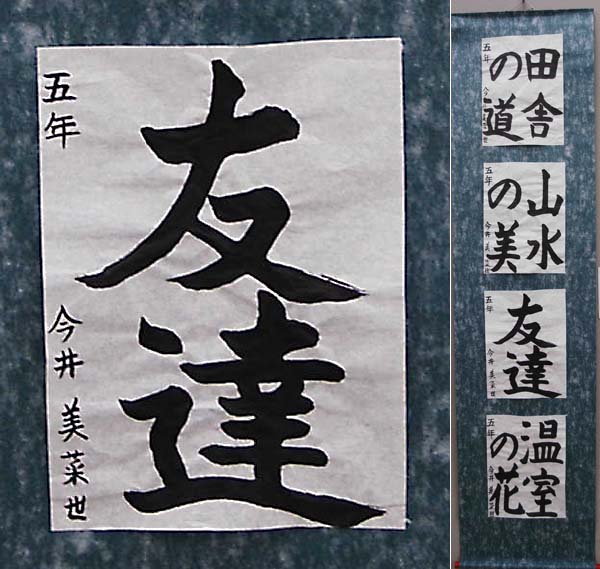 友達
五年
今井 美菜世
田舎
の道
五年
山水
の美
五年
今井 美菜世
友達
五年
今井 美菜世
温室
の花
五年
今井 美菜世